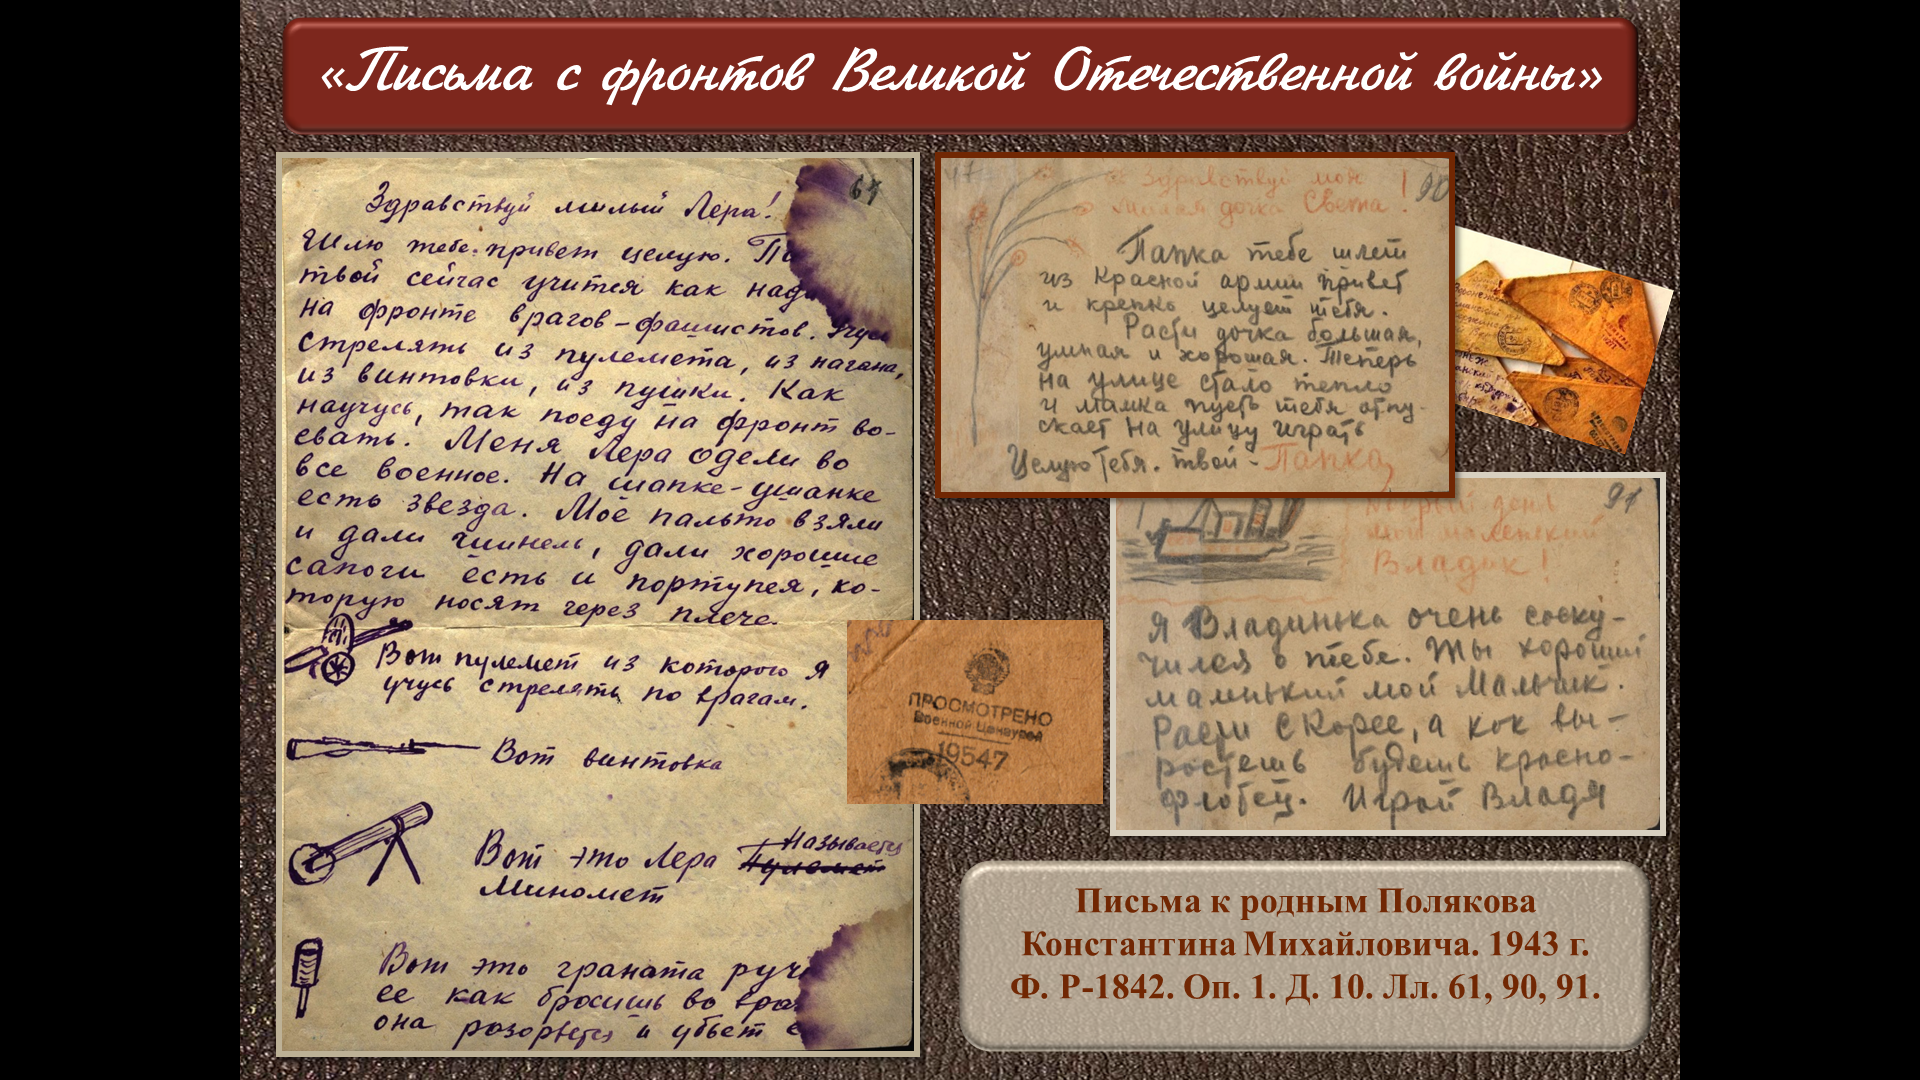 «Письма с фронтов Великой Отечественной войны»
61
Здравствуй милый Лера!
Шлю тебе привет целую.
твой сейчас учится как
на фронте врагов-фашистов.
стрелять из пулемета, из нагана,
из винтовки, из пушки. Как
научусь, так поеду на фронт во-
евать. Меня Лера одели во
все военное. На шапке-ушанке
есть звезда. Моё пальто взяли
и дали шинель, дали хорошие
сапоги есть и портупея, ко-
торую носят через плече.
Вот пулемет из которого я
учусь стрелять по врагам.
Вот винтовка
Называется
Вот это Лера Пулемет
Миномет
Вот это граната
ее как бросишь во
она разорвется и убьет
47
90
Здравствуй моя
милая дочка Света!
Папка тебе шлет
из Красной армии привет
и крепко целует тебя.
Расти дочка большая,
умная и хорошая. Теперь
на улице стало тепло
и мамка пусть тебя отпу-
скает на улицу играть
Целую тебя. твой - Папка
91
Добрый день
мой маленький
Владик!
Я Владинька очень соску-
чился о тебе. Ты хороший
маминький мой Мальчик.
Расти скорее, а как вы-
ростешь будешь красно-
флотец. Играй Владя
ПРОСМОТРЕНО
Военной Цензурой
10547
Письма к родным Полякова
Константина Михайловича. 1943 г.
Ф. Р-1842. Оп. 1. Д. 10. Лл. 61, 90, 91.